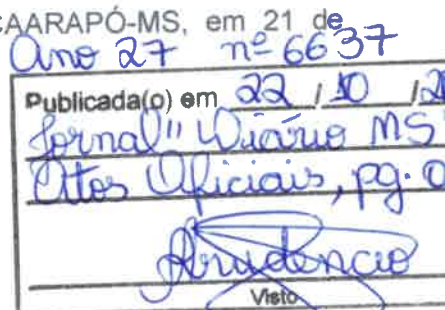 CAARAPÓ-MS, em 21 de
Ano 27 nº 6637
Publicada(o) em 22 / 10 / 2
Jornal "Diário MS
Atos Oficiais, pg. 0
Prudencio
Visto